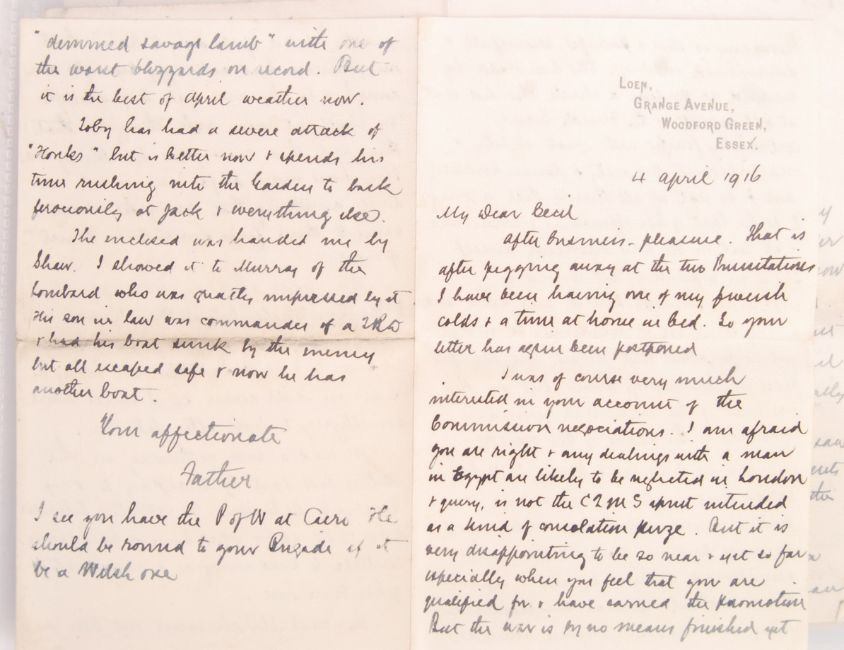 "demmed savage lamb" with one of
the worst blizzards on record. But
it is the best of April weather now.
Toby has had a severe attack of
"Honks" but is better now & spends his
time rushing into the Garden to bark
ferociously at Jack & everything else.
The enclosed was handed me by
Shaw. I showed it to Murray of the
Lombard who was greatly impressed by it
His son in law was commander of a
& had his boat sunk by the enemy
but all escaped safe & now he has
another boat.
Your affectionate
Father
I see you have the P of W at Cairo He
should be round to your Brigade if it
be a Welsh one
LOEN,
GRANGE AVENUE,
WOODFORD GREEN,
ESSEX.
4 April 1916
My Dear Cecil
After business - pleasure. That is
after pegging away at the two
I have been having one of my
colds & a time at home in bed. So your
letter has again been postponed
I was of course very much
interested in your account of the
Commission negociations. I am afraid
you are right & any dealings with a man
in Egypt are likely to be neglected in London
& query, is not the intended
as a kind of consolation prize. But it is
very disappointing to be so near & yet so far
especially when you feel that you are
qualified for & have earned the promotion
But the war is by no means finished yet